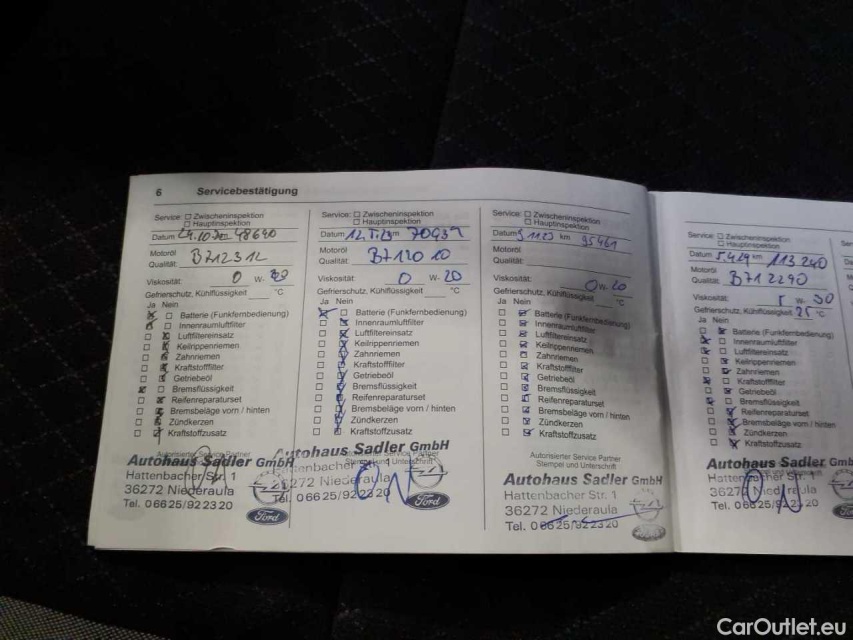 6 Servicebestätigung
Service: Zwischeninspektion
Hauptinspektion
Datum 24.10 48640
Motoröl
Qualität: B712312
Viskosität: 0 W-
Gefrierschutz, Kühlflüssigkeit °C
Ja Nein
Batterie (Funkfernbedienung)
Innenraumluftfilter
Luftfiltereinsatz
Keilrippenriemen
Zahnriemen
Kraftstofffilter
Getriebeöl
Bremsflüssigkeit
Reifenreparaturset
Bremsbeläge vorn / hinten
Zündkerzen
Kraftstoffzusatz
Autorisierter Service Partner
Autohaus Sadler GmbH
Hattenbacher Str. 1
36272 Niederaula
Tel. 06625/922320
Ford
Service: Zwischeninspektion
Hauptinspektion
Datum km
Motoröl
Qualität:
Viskosität: 0 W-20
Gefrierschutz, Kühlflüssigkeit °C
Ja Nein
Batterie (Funkfernbedienung)
Innenraumluftfilter
Luftfiltereinsatz
Keilrippenriemen
Zahnriemen
Kraftstofffilter
Getriebeöl
Bremsflüssigkeit
Reifenreparaturset
Bremsbeläge vorn / hinten
Zündkerzen
Kraftstoffzusatz
Stempel und Unterschrift
Autohaus Sadler GmbH
Hattenbacher Str. 1
36272 Niederaula
Tel. 06625/922320
Ford
Service: Zwischeninspektion
Hauptinspektion
Datum km 95461
Motoröl
Qualität:
Viskosität: 0 W-20
Gefrierschutz, Kühlflüssigkeit °C
Ja Nein
Batterie (Funkfernbedienung)
Innenraumluftfilter
Luftfiltereinsatz
Keilrippenriemen
Zahnriemen
Kraftstofffilter
Getriebeöl
Bremsflüssigkeit
Reifenreparaturset
Bremsbeläge vorn / hinten
Zündkerzen
Kraftstoffzusatz
Autorisierter Service Partner
Stempel und Unterschrift
Autohaus Sadler GmbH
Hattenbacher Str. 1
36272 Niederaula
Tel. 06625/922320
Service: Zwischeninspektion
Hauptinspektion
Datum 5.4.24 km 113240
Motoröl
Qualität: B712290
Viskosität: W-30
Gefrierschutz, Kühlflüssigkeit 25 °C
Ja Nein
Batterie (Funkfernbedienung)
Innenraumluftfilter
Luftfiltereinsatz
Keilrippenriemen
Zahnriemen
Kraftstofffilter
Getriebeöl
Bremsflüssigkeit
Reifenreparaturset
Bremsbeläge vorn / hinten
Zündkerzen
Kraftstoffzusatz
Autohaus Sadler GmbH
Hattenbacher Str. 1
36272 Niederaula
Tel. 06625/922320
CarOutlet.eu